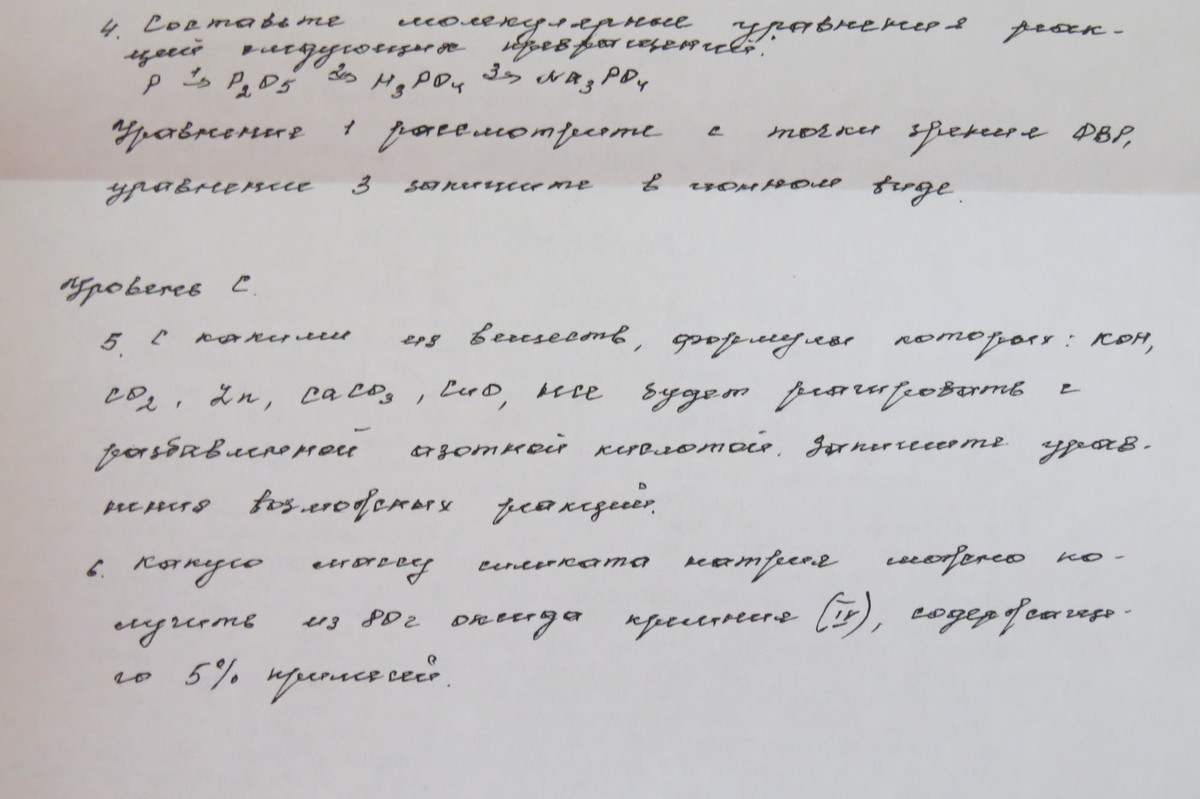 4. Составьте молекулярные уравнения реак-
ций следующих превращений:
P 1→ P2O5 2→ H3PO4 3→ Na3PO4
Уравнения 1 рассмотрите с точки зрения ОВР,
уравнение 3 запишите в ионном виде.
Уровень С.
5. С какими из веществ, формулы которых: KOH,
CO2, Zn, CaCO3, CuO, не будет реагировать с
разбавленной азотной кислотой. Запишите урав-
нения возможных реакций.
6. Какую массу силиката натрия можно по-
лучить из 80г оксида кремния (IV), содержаще-
го 5% примесей.